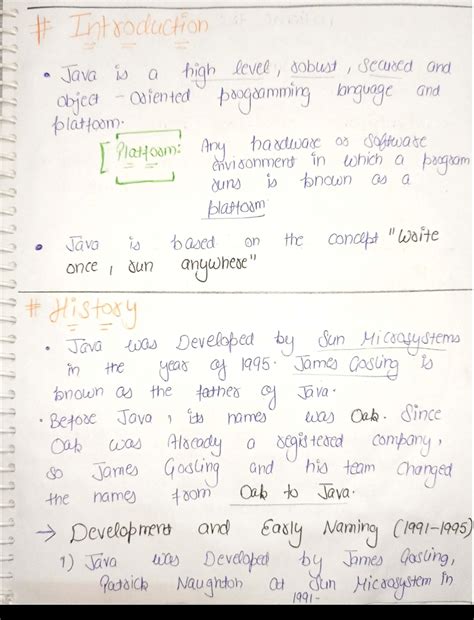 # Introduction
• Java is a high level, robust, secured and
object - oriented programming language and
platform.
Platform: Any hardware or software
environment in which a program
runs is known as a
platform
• Java is based on the concept "Write
once, run anywhere"
# History
• Java was Developed by Sun Microsystems
in the year of 1995. James Gosling is
known as the father of Java.
• Before Java, its names was Oak. Since
Oak was Already a registered company,
so James Gosling and his team changed
the names from Oak to Java.
→ Development and Early Naming (1991-1995)
1) Java was Developed by James Gosling,
Patrick Naughton at Sun Microsystem in
1991-